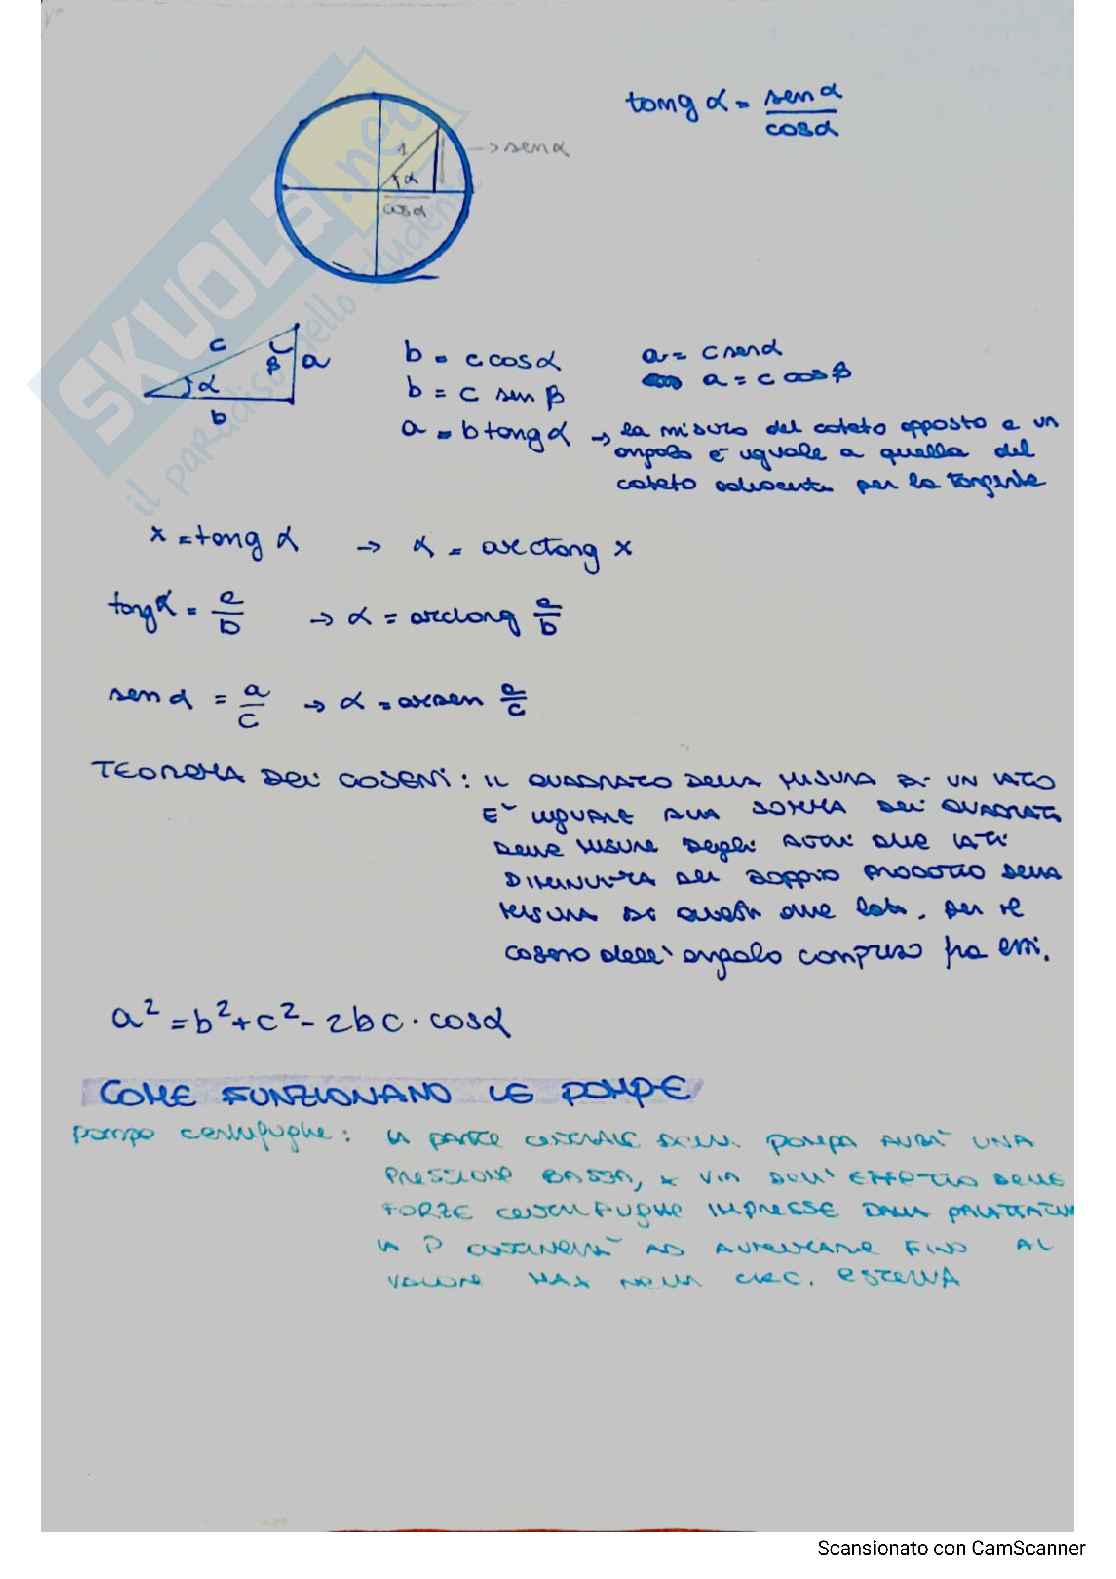 tang α = sen α / cos α
1
α
→ sen α
cos α
SKUOLA.net
il paradiso dello studente
c
β
a
α
b
b = c cos α
a = c sen α
b = c sen β
a = c cos β
a = b tang α → la misura del cateto opposto a un
angolo è uguale a quella del
cateto adiacente per la tangente
x = tang α → α = arctang x
tang α = a/b → α = arctang a/b
sen α = a/c → α = arcsen a/c
TEOREMA DEI COSENI: IL QUADRATO DELLA MISURA DI UN LATO
E' UGUALE ALLA SOMMA DEI QUADRATI
DELLE MISURE DEGLI ALTRI DUE LATI
DIMINUITA DEL DOPPIO PRODOTTO DELLA
MISURA DI QUESTI due lati. per il
coseno dell'angolo compreso fra essi.
a² = b² + c² - 2bc · cos α
COME FUNZIONANO LE POMPE
pompa centrifughe: LA PARTE CENTRALE DELLA POMPA AVRA' UNA
PRESSIONE BASSA, X VIA DELL'EFFETTO DELLE
FORZE CENTRIFUGHE IMPRESSE DALLA
LA P AD AUMENTARE FINO AL
VALORE MAX NELLA CIRC. ESTERNA
Scansionato con CamScanner